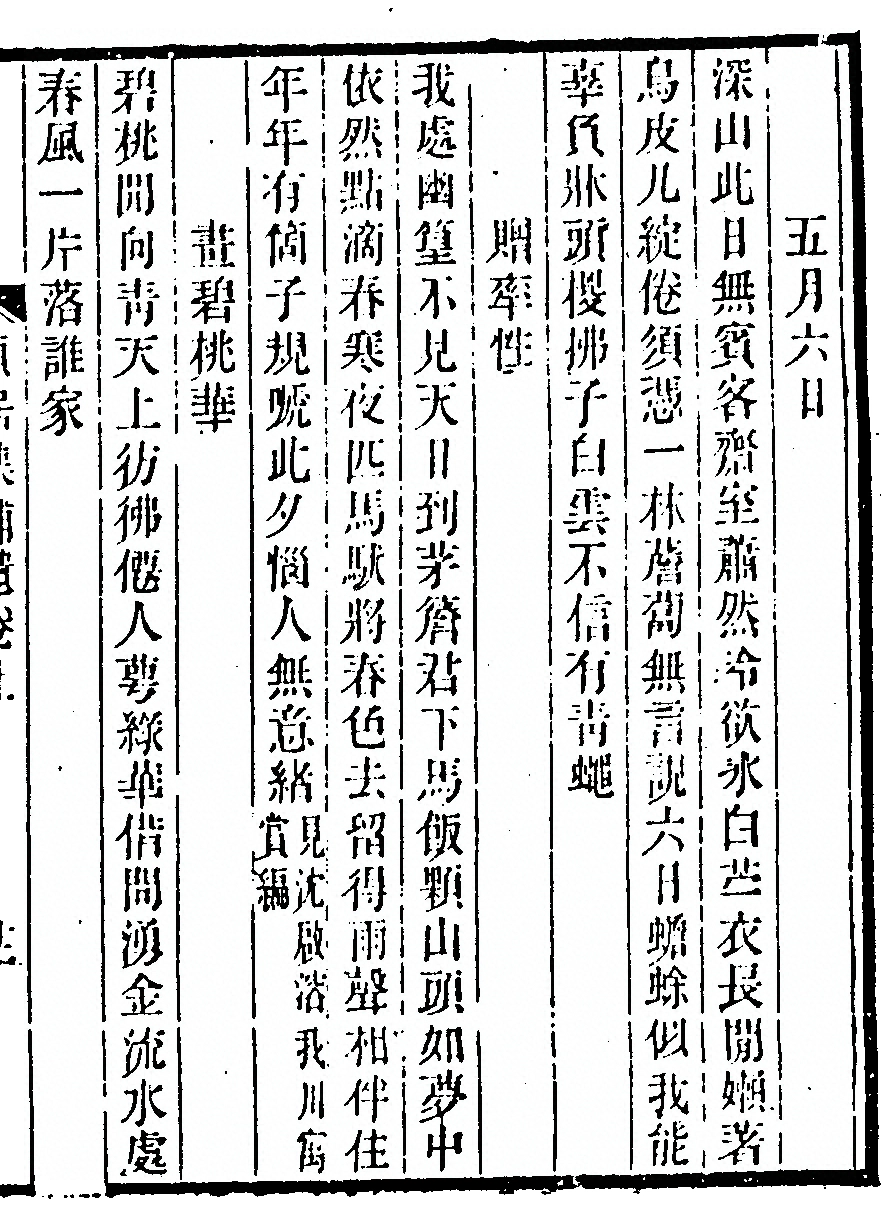 五月六日
深山此日無賓客齋室蕭然冷欲氷白苧衣長閒嬾著
烏皮几綻倦須憑一林薝蔔無言說六日蟾蜍似我能
辜負牀頭椶拂子白雲不信有青蠅
贈率性
我處幽篁不見天日到茅簷君下馬飯顆山頭如夢中
依然點滴春寒夜匹馬馱將春色去留得雨聲相伴住
年年有箇子規號此夕惱人無意緒見沈啟浩我川寓
賞編
畫碧桃華
碧桃開向青天上彷彿僊人萼綠華借問湧金流水處
春風一片落誰家